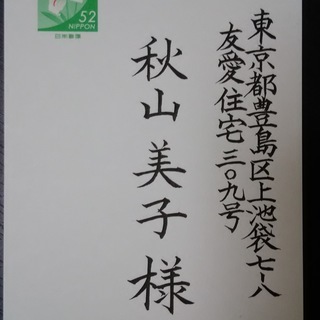 東京都豊島区上池袋七-八
友愛住宅三〇九号
秋山美子様
52
NIPPON
日本郵便